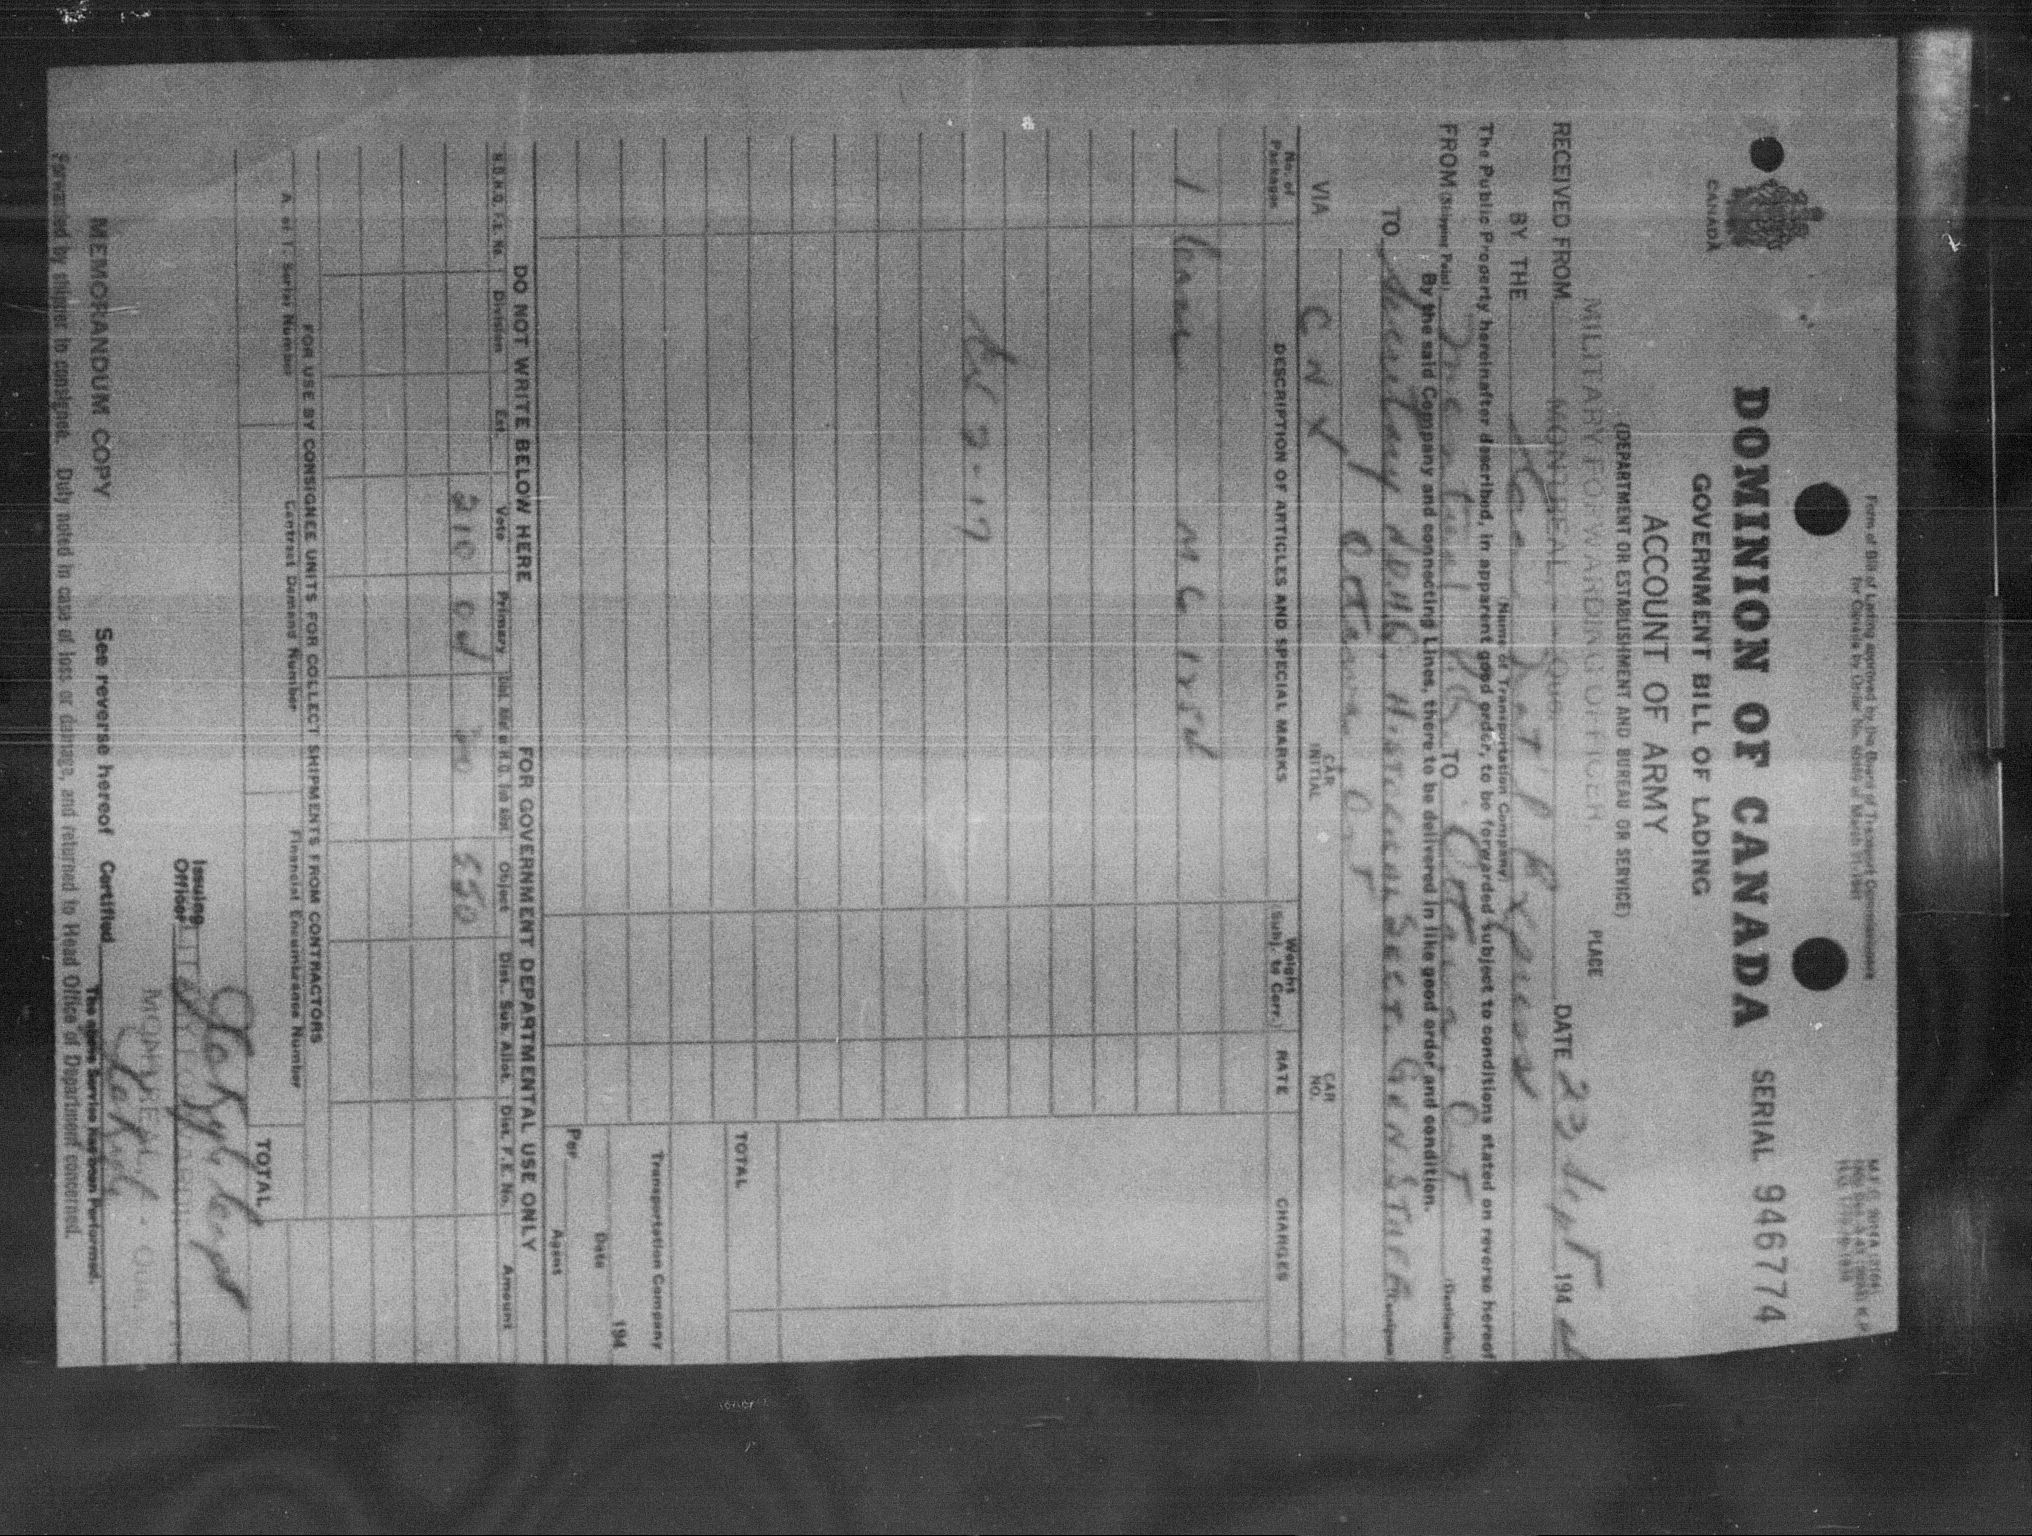 Form of Bill of Lading approved by the Board of Transport Commissioners
for Canada by Order No.
DOMINION OF CANADA
SERIAL 946774
CANADA
GOVERNMENT BILL OF LADING
ACCOUNT OF ARMY
(DEPARTMENT OR ESTABLISHMENT AND BUREAU OR SERVICE)
MILITARY FORWARDING OFFICER, PLACE
RECEIVED FROM MONTREAL, - Que. DATE 23 Sept 194
BY THE Can Nat'l Express
(Name of Transportation Company)
The Public Property hereinafter described, in apparent good order, to be forwarded subject to conditions stated on reverse hereof
FROM (Shipping Point) Montreal PQ. TO Ottawa Ont (Destination)
By the said Company and connecting Lines, there to be delivered in like good order and condition.
TO Secretary NDHQ, Historical Sect. Gen Staff (Consignee)
Ottawa Ont
VIA C N X CAR INITIAL CAR NO.
No. of Packages DESCRIPTION OF ARTICLES AND SPECIAL MARKS Weight (Subj. to Corr.) RATE CHARGES
1 Case MG
2-17
TOTAL
Transportation Company
Date 194
Per Agent
DO NOT WRITE BELOW HERE FOR GOVERNMENT DEPARTMENTAL USE ONLY
N.D.H.Q. F.E. No. Division Ext. Vote Primary Object Dist. Sub. Allot. Dist. F.E. No. Amount
210 04 00 550
FOR USE BY CONSIGNEE UNITS FOR COLLECT SHIPMENTS FROM CONTRACTORS
A. of T. Serial Number Contract Demand Number Financial Encumbrance Number TOTAL
Issuing Officer
MONTREAL, - Que.
MEMORANDUM COPY See reverse hereof Certified
The above Service Has Been Performed.
Forwarded by shipper to consignee. Duly noted in case of loss or damage, and returned to Head Office of Department concerned.